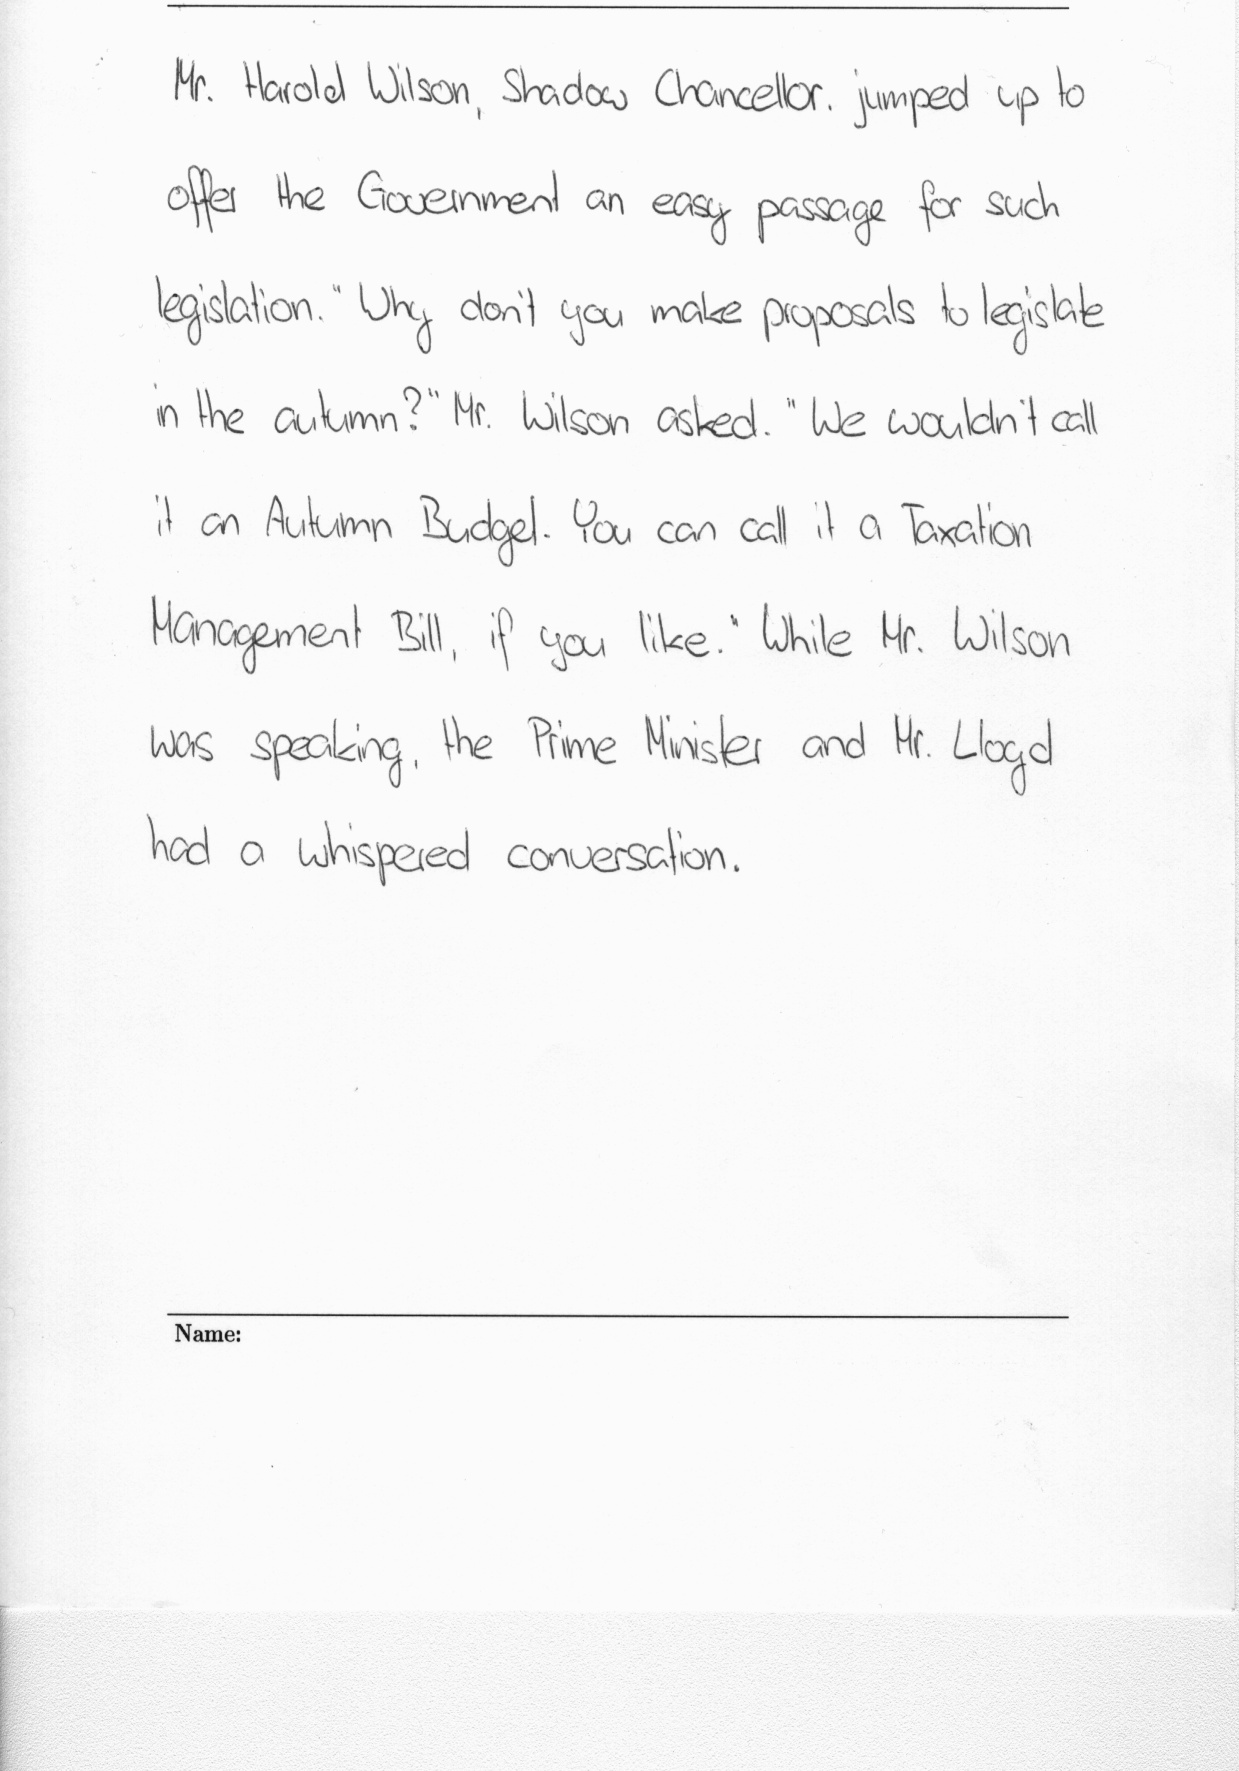 Mr. Harold Wilson, Shadow Chancellor. jumped up to
offer the Government an easy passage for such
legislation. "Why don't you make proposals to legislate
in the autumn?" Mr. Wilson asked. "We wouldn't call
it an Autumn Budget. You can call it a Taxation
Management Bill, if you like." While Mr. Wilson
was speaking, the Prime Minister and Mr. Lloyd
had a whispered conversation.
Name: